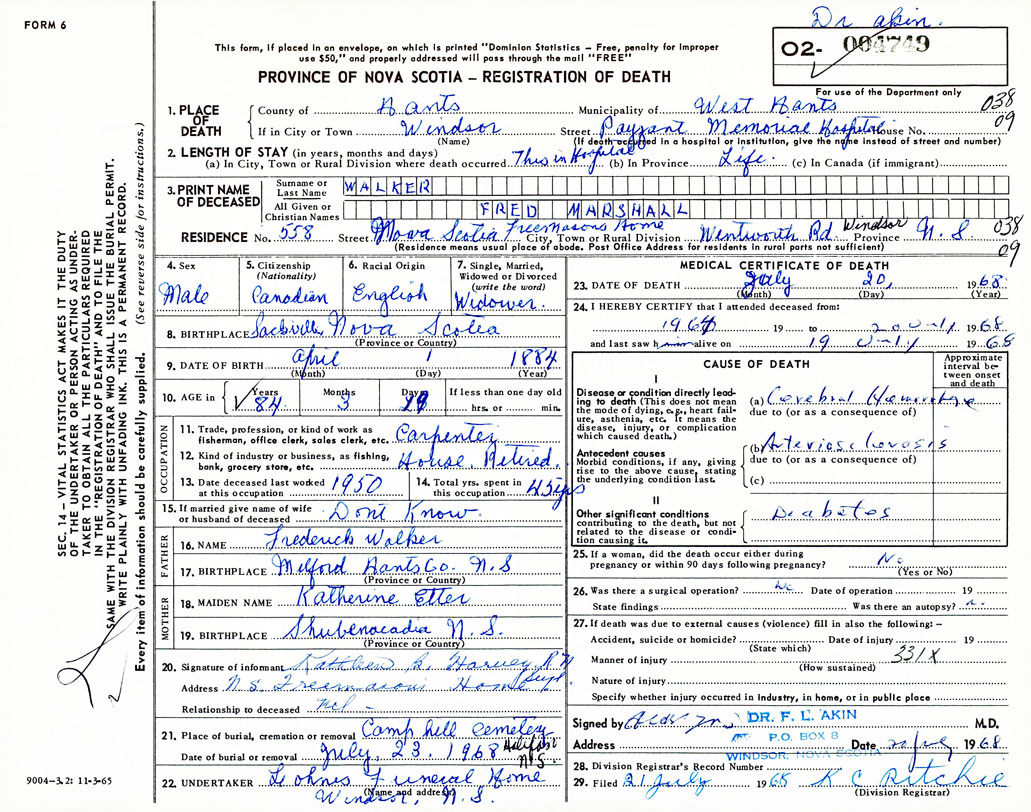 FORM 6
Dr Akin.
02- 004749
For use of the Department only
This form, if placed in an envelope, on which is printed "Dominion Statistics – Free, penalty for improper
use $50," and properly addressed will pass through the mail "FREE"
PROVINCE OF NOVA SCOTIA – REGISTRATION OF DEATH
SEC. 14 – VITAL STATISTICS ACT MAKES IT THE DUTY
OF THE UNDERTAKER OR PERSON ACTING AS UNDER-
TAKER TO OBTAIN ALL THE PARTICULARS REQUIRED
IN THE "REGISTRATION OF DEATH" AND TO FILE THE
SAME WITH THE DIVISION REGISTRAR WHO SHALL ISSUE THE BURIAL PERMIT.
WRITE PLAINLY WITH UNFADING INK. THIS IS A PERMANENT RECORD.
Every item of information should be carefully supplied. (See reverse side for instructions.)
1. PLACE OF DEATH
County of Hants Municipality of West Hants 038
If in City or Town Windsor Street Payzant Memorial Hospital House No. 09
(Name) (If death occurred in a hospital or institution, give the name instead of street and number)
2. LENGTH OF STAY (in years, months and days)
(a) In City, Town or Rural Division where death occurred This in Hospital (b) In Province Life. (c) In Canada (if immigrant)
3. PRINT NAME OF DECEASED
Surname or Last Name WALKER
All Given or Christian Names FRED MARSHALL
RESIDENCE No. 558 Street Nova Scotia Freemasons Home City, Town or Rural Division Wentworth Rd Windsor Province N. S. 038
09
(Residence means usual place of abode. Post Office Address for residents in rural parts not sufficient)
4. Sex
Male
5. Citizenship
(Nationality)
Canadian
6. Racial Origin
English
7. Single, Married,
Widowed or Divorced
(write the word)
Widower.
8. BIRTHPLACE Sackville, Nova Scotia
(Province or Country)
9. DATE OF BIRTH April 1 1884
(Month) (Day) (Year)
10. AGE in Years Months Days If less than one day old
84 3 19 hrs. or min.
OCCUPATION
11. Trade, profession, or kind of work as
fisherman, office clerk, sales clerk, etc. Carpenter
12. Kind of industry or business, as fishing,
bank, grocery store, etc. House. Retired.
13. Date deceased last worked
at this occupation 1950
14. Total yrs. spent in
this occupation 45 yrs
15. If married give name of wife
or husband of deceased Dont Know.
FATHER
16. NAME Frederick Walker
17. BIRTHPLACE Milford Hants Co. N. S
(Province or Country)
MOTHER
18. MAIDEN NAME Katherine Etter
19. BIRTHPLACE Shubenacadia N. S.
(Province or Country)
20. Signature of informant Kathleen Harvey R.N
Supt.
Address N.S. Freemasons Home
Relationship to deceased nil –
21. Place of burial, cremation or removal Camp hill cemetery
Halifax N.S.
Date of burial or removal July 23, 1968
22. UNDERTAKER Lohnes Funeral Home
(Name and address)
Windsor, N. S.
9004–3.2: 11-3-65
MEDICAL CERTIFICATE OF DEATH
23. DATE OF DEATH July 20, 1968.
(Month) (Day) (Year)
24. I HEREBY CERTIFY that I attended deceased from:
1964 19 to 20 July 1968
and last saw h alive on 19 July 1968
CAUSE OF DEATH
Approximate
interval be-
tween onset
and death
I
Disease or condition directly lead-
ing to death (This does not mean
the mode of dying, e.g., heart fail-
ure, asthenia, etc. It means the
disease, injury, or complication
which caused death.)
(a) Cerebral Hemorrhage
due to (or as a consequence of)
Antecedent causes
Morbid conditions, if any, giving
rise to the above cause, stating
the underlying condition last.
(b) Arteriosclerosis
due to (or as a consequence of)
(c)
II
Other significant conditions
contributing to the death, but not
related to the disease or condi-
tion causing it.
Diabetes
25. If a woman, did the death occur either during
pregnancy or within 90 days following pregnancy? No
(Yes or No)
26. Was there a surgical operation? No Date of operation 19
State findings Was there an autopsy? n.
27. If death was due to external causes (violence) fill in also the following:–
Accident, suicide or homicide? Date of injury 19
(State which)
Manner of injury 331X
(How sustained)
Nature of injury
Specify whether injury occurred in industry, in home, or in public place
Signed by M.D.
DR. F. L. AKIN
P.O. BOX 8
WINDSOR, NOVA SCOTIA
Address Date 20 July 1968
28. Division Registrar's Record Number
29. Filed 21 July 1968 K C Ritchie
(Division Registrar)